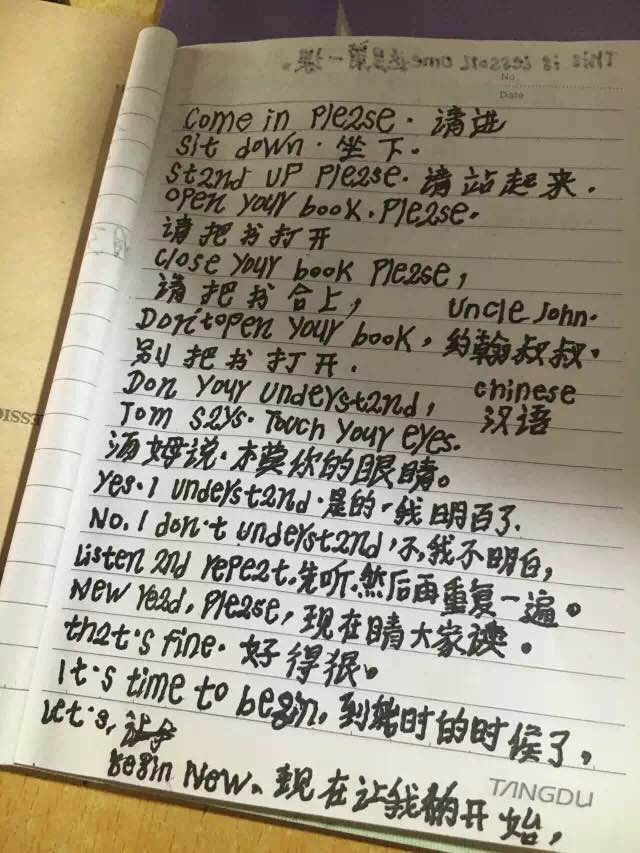 This is Lesson one 这是第一课。
No.
Date
Come in Please. 请进
Sit down. 坐下.
Stand up Please. 请站起来.
open your book. Please.
请把书打开
close your book Please,
请把书合上, Uncle John.
Don't open your book, 约翰叔叔.
别把书打开. chinese
Don your understand, 汉语
Tom says. Touch your eyes.
汤姆说. 你的眼睛。
Yes. I understand. 是的,我明百了.
No. I don't understand, 不,我不明白,
Listen and repeat. 先听.然后再重复一遍。
New read, Please, 现在睛大家读。
that's fine. 好得很。
It's time to begin. 到始时的时候了,
Let's,
Begin New、现在让我们开始,
TANGDU
ESSIO